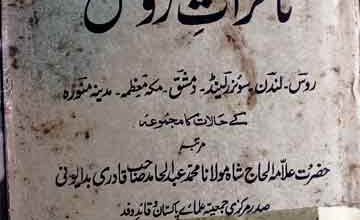 تاثراتِ روس
روس - لندن - سوئزرلینڈ - دمشق - مکہ معظمہ - مدینہ منورہ
کے حالات کا مجموعہ
مرتبہ
حضرت علامہ الحاج شاہ مولانا محمد عبدالحامد صاحب قادری بدایونی
صدر مرکزی جمعیۃ علمائے پاکستان و قائد وفد